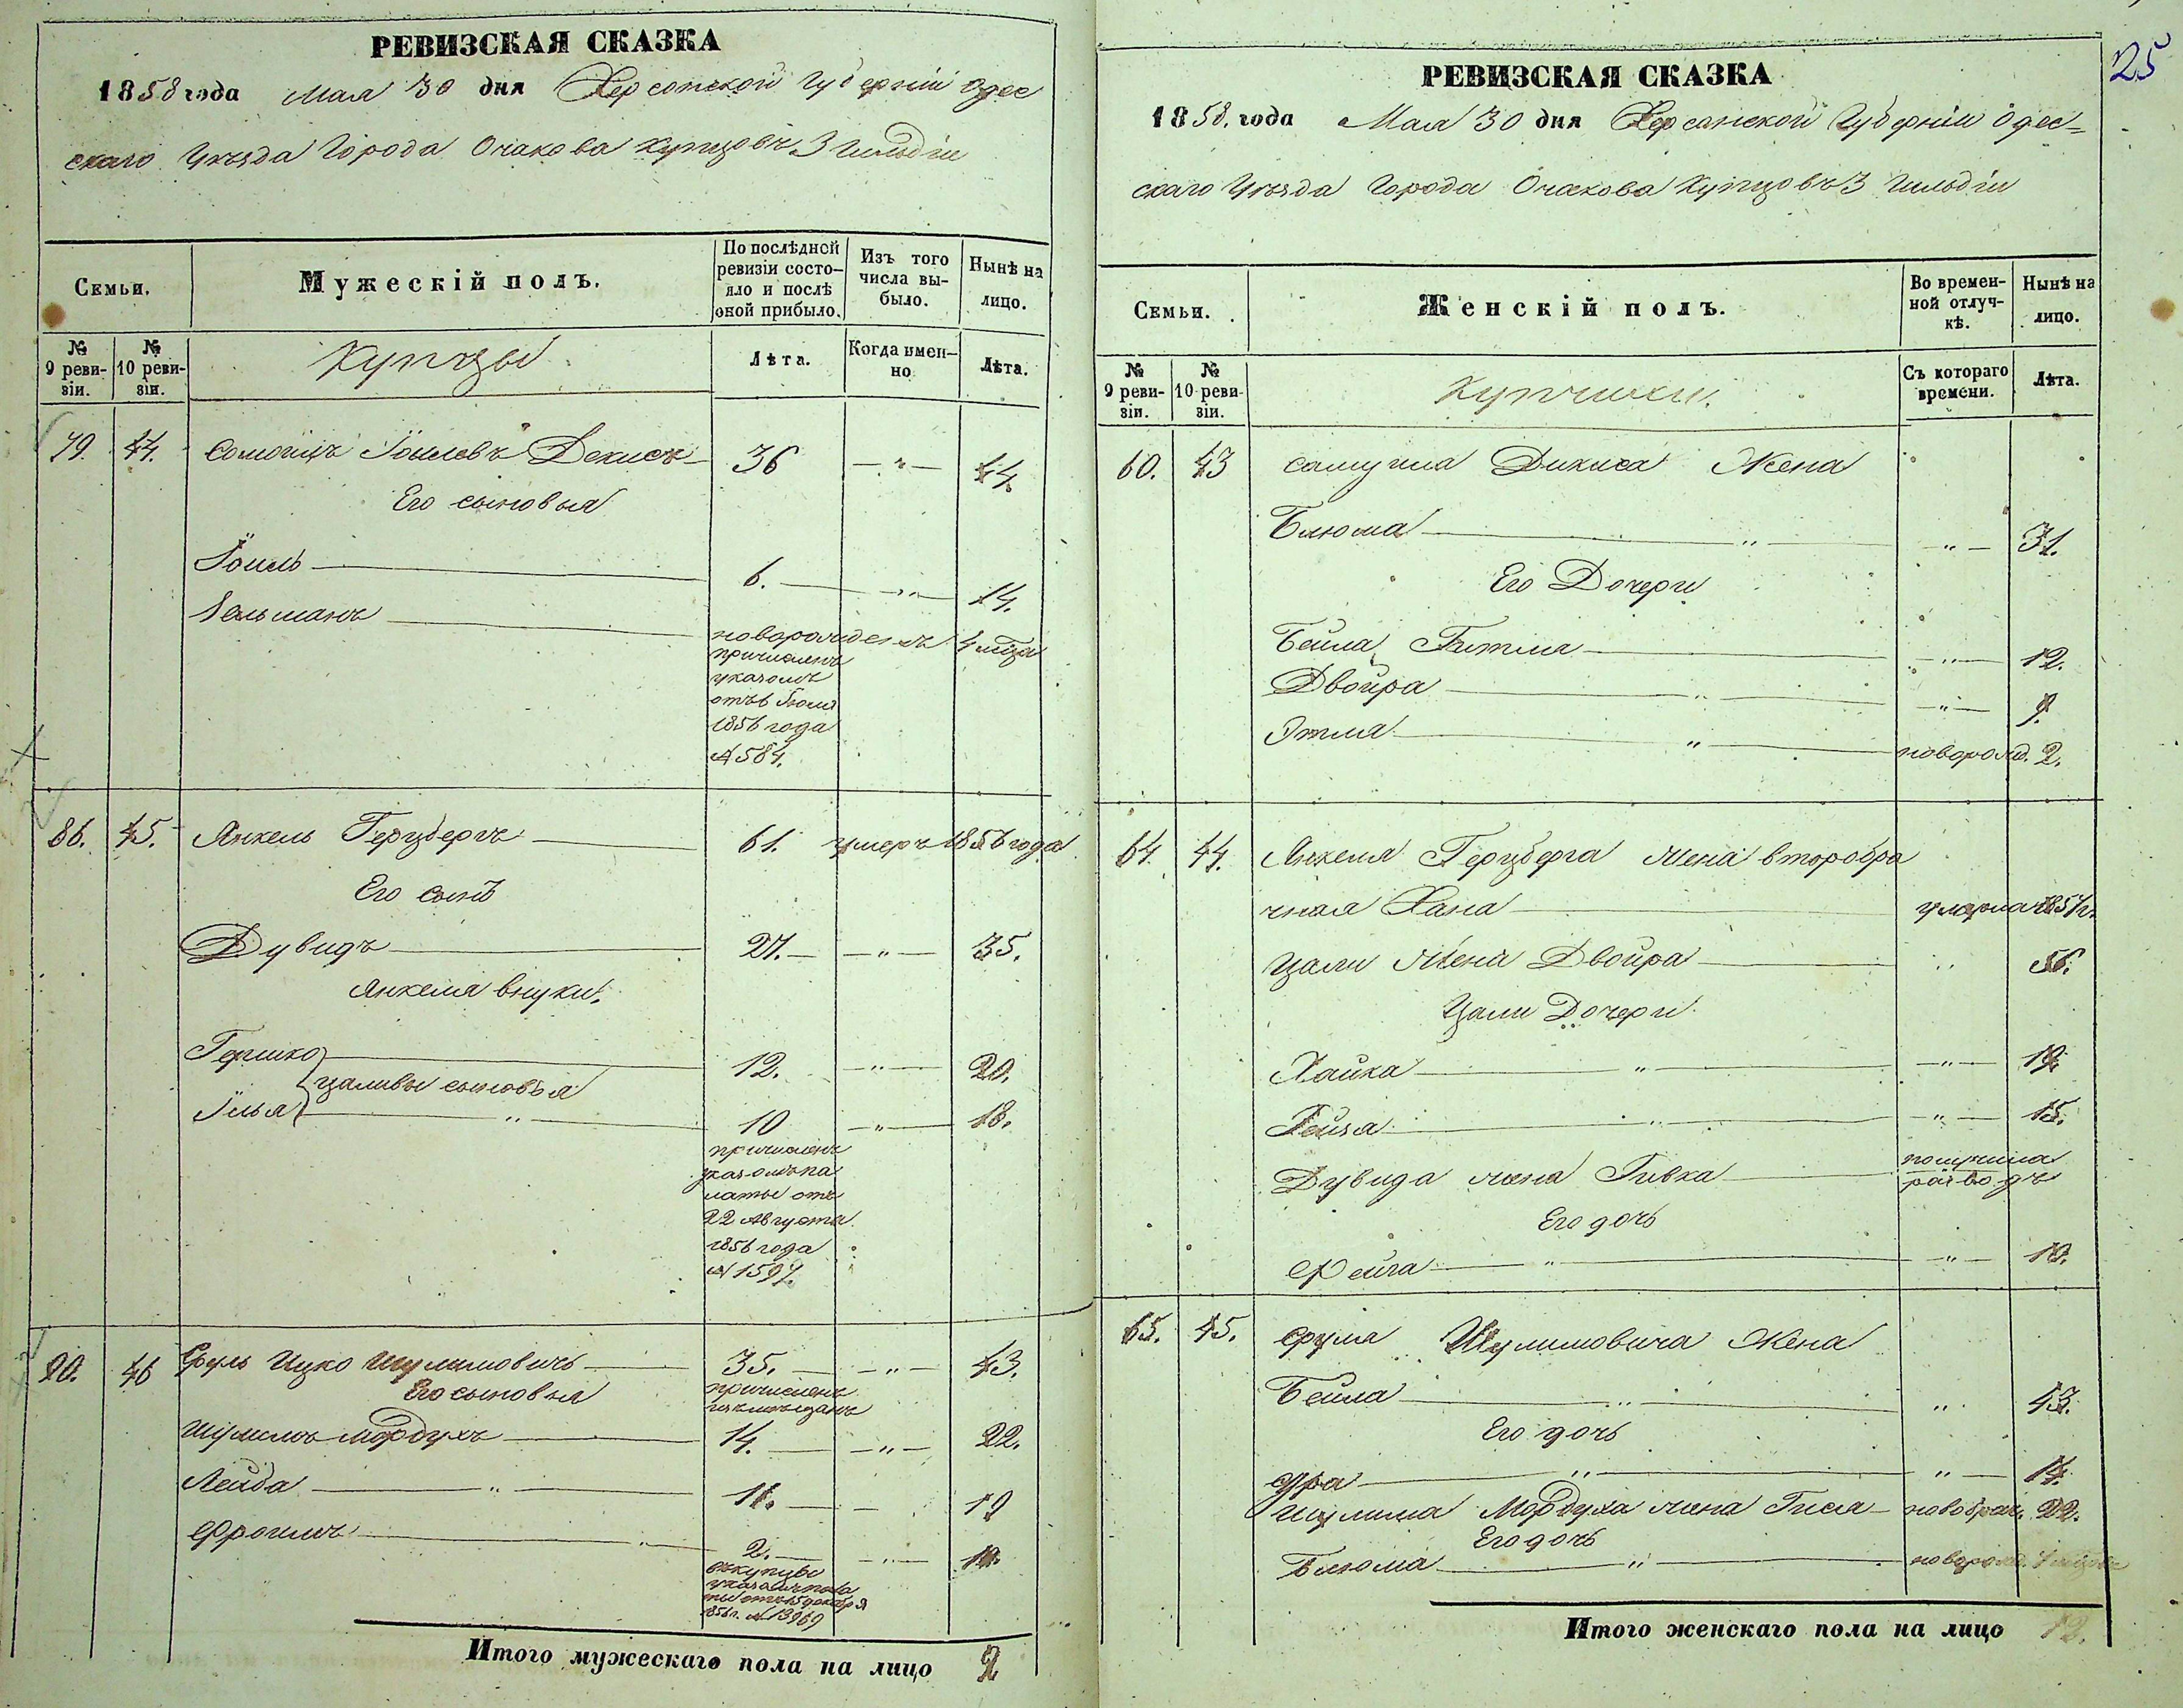 РЕВИЗСКАЯ СКАЗКА
1858 года Мая 30 дня Херсонской Губерніи Одес
скаго Уѣзда Города Очакова Купцовъ 3 Гильдіи
Семьи.
Мужескій полъ.
По послѣдней ревизіи состо-
яло и послѣ оной прибыло.
Изъ того числа вы-
было.
Нынѣ на лицо.
№ 9 реви-
зіи.
№ 10 реви-
зіи.
Купцы
Лѣта.
Когда имен-
но
Лѣта.
79. 44. Іоилевъ Декисъ 36 — " — 44.
Его сыновья
Іоиль 6. — " — 14.
Зельманъ новорожденъ 4 мѣца
причисленъ
указомъ
отъ 6 Іюля
1856 года
№ 584.
86. 45. Янкель Герцбергъ 61. умеръ 1856 года
Его сынъ
Дувидъ 27. — " — 35.
Янкеля внуки.
Гершко 12. — " — 20.
Цаливы сыновья
Илья " 10 — " — 18.
причисленъ
указомъ па
латы отъ
22 Августа
1856 года
№ 1597.
90. 46 Сруль Ицко Шулимовичъ 35. — " — 43.
Его сыновья причисленъ
Шулимъ Мордухъ 14. — " — 22.
Лейба " 11. — 19
Фроимъ " 2. — " — 10.
въ купцы
указомъ пала
ты отъ 15 декабря
1856 г. № 13969
Итого мужескаго пола на лицо 9
25
РЕВИЗСКАЯ СКАЗКА
1858. года Мая 30 дня Херсонской Губерніи Одес-
скаго Уѣзда Города Очакова Купцовъ 3 Гильдіи
Семьи.
Женскій полъ.
Во времен-
ной отлуч-
кѣ.
Нынѣ на лицо.
№ 9 реви-
зіи.
№ 10 реви-
зіи.
Купчихи.
Съ котораго времени.
Лѣта.
60. 43 Дикиса Жена
Блюма " — " — 31.
Его Дочери
Бейла Гитля — " — 12.
Двойра " — " — 9.
Этля " новорожд. 2.
64. 44. Янкеля Герцберга жена второбра
чная Хана умерла 1857 г.
Цали Жена Двойра " 56.
Цали Дочери
Хайка " — " — 19.
Гейзя " — " — 15.
Дувида жена Ривка получила
разводъ
Его дочь
Фейга " — " — 10.
65. 45. Сруля Шулимовича Жена
Бейла " " 43.
Его дочь
" " — 14.
Шулима Мордуха жена Гися новобрач. 22.
Его дочь
Блюма " новорожд.
Итого женскаго пола на лицо 12.